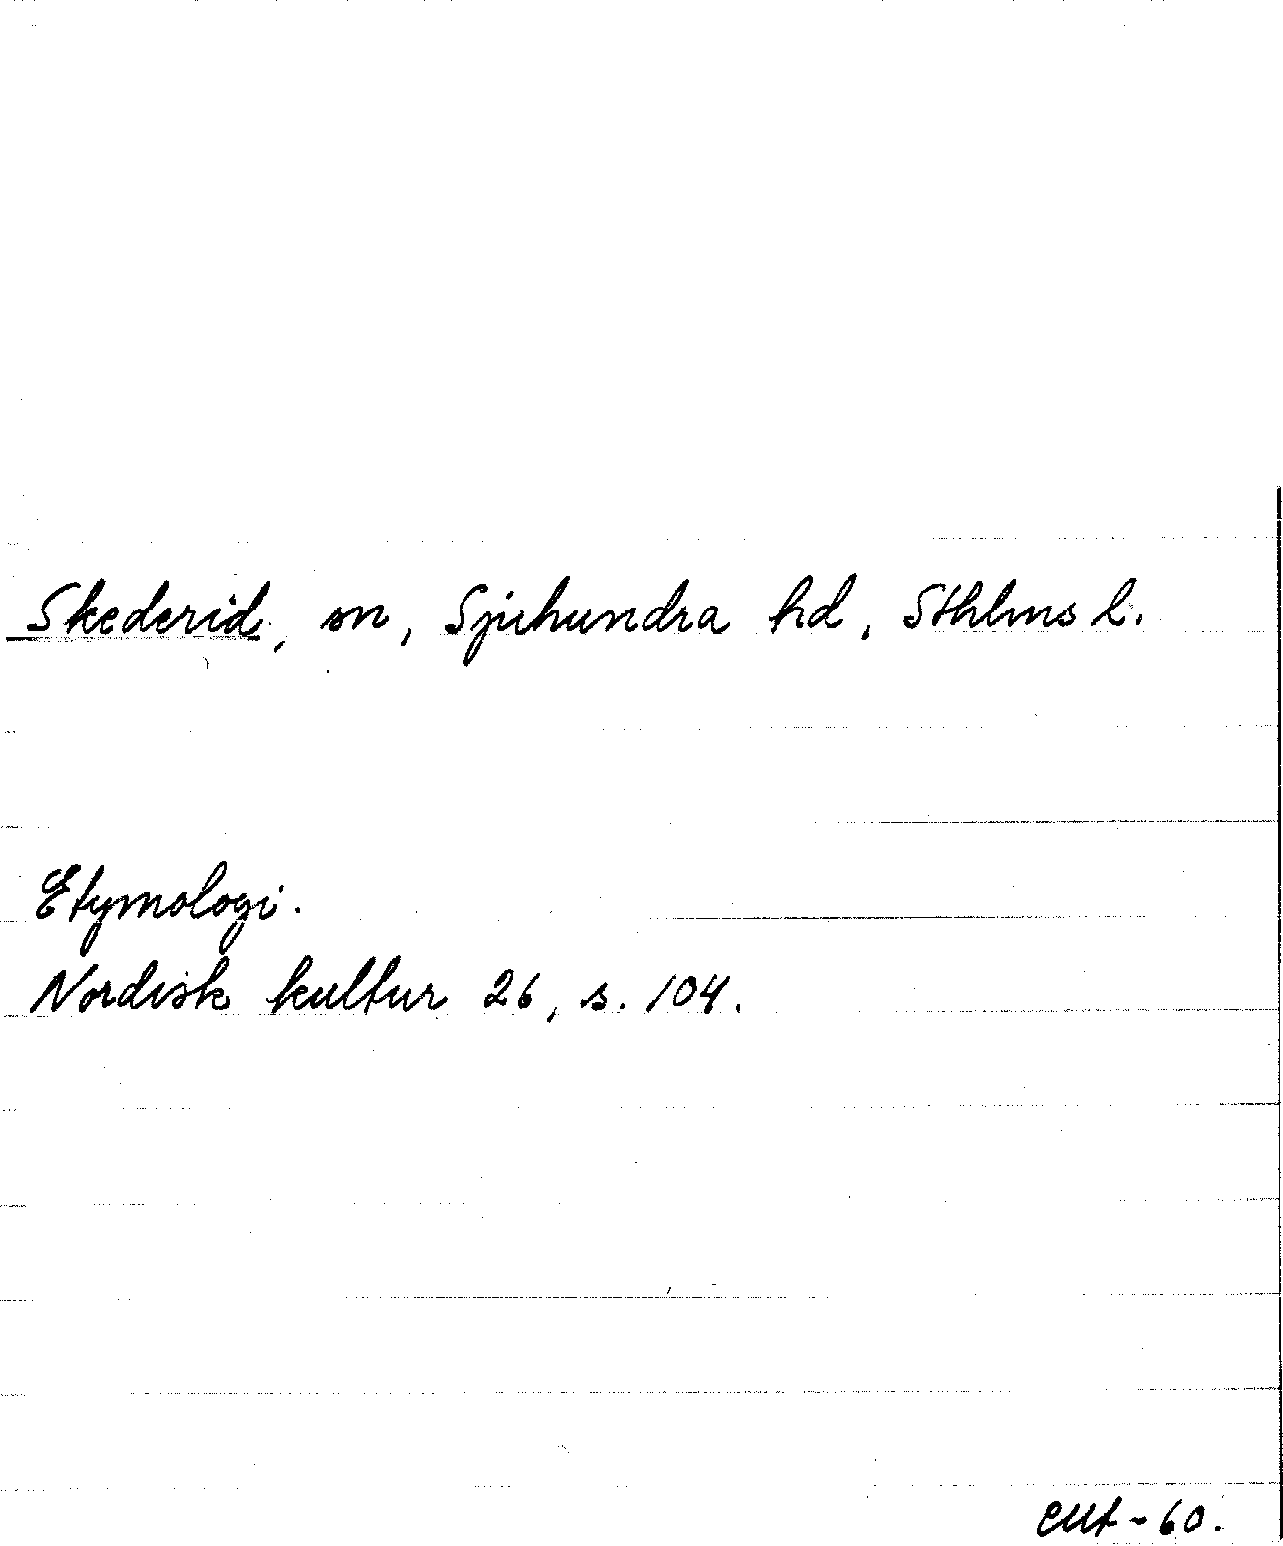 Skederid, sn, Sjuhundra hd, Sthlms l.
Etymologi.
Nordisk kultur 26, s. 104.